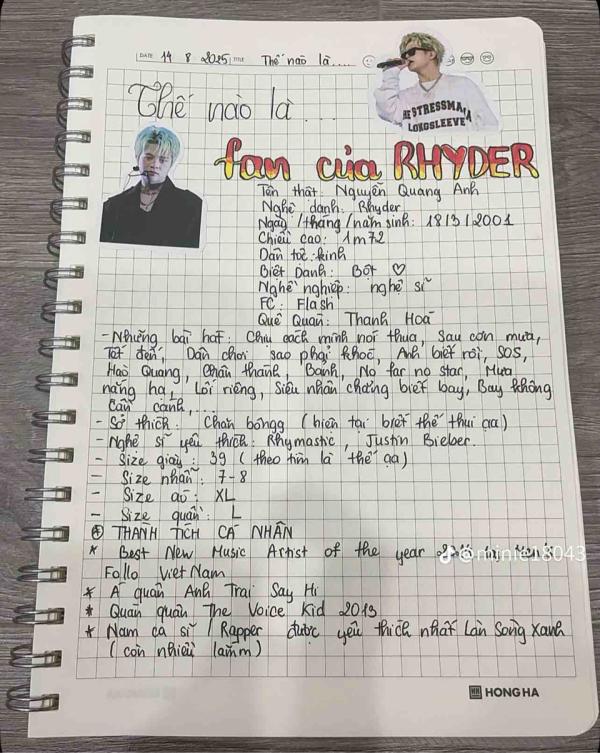 DATE 14 8 2025 TITLE Thế nào là....
Thế nào là ...
THE STRESSMAMA
LONGSLEEVE
fan của RHYDER
Tên thật: Nguyễn Quang Anh
Nghệ danh: Rhyder
Ngày/tháng/năm sinh: 18/3/2001
Chiều cao: 1m72
Dân tộc: kinh
Biệt Danh: Bột ♡
Nghề nghiệp: nghệ sĩ
FC: Flash
Quê Quán: Thanh Hoá
- Những bài hát: Chịu cách mình nói thua, Sau cơn mưa,
Tết đến, Dân chơi sao phải khóc, Anh biết rồi, SOS,
Hào Quang, Chân thành, Bánh, No far no star, Mưa
nắng hạ, Lối riêng, Siêu nhân chẳng biết bay, Bay không
cần cánh,...
- Sở thích: Chơi bóngg (hiện tại biết thế thui ạa)
- Nghệ sĩ yêu thích: Rhymastic, Justin Bieber.
- Size giày: 39 (theo tìm là thế ạa)
- Size nhẫn: 7-8
- Size áo: XL
- Size quần: L
THÀNH TÍCH CÁ NHÂN
* Best New Music Artist of the year
Follo Việt Nam
* Á quân Anh Trai Say Hi
* Quán quân The Voice Kid 2013
* Nam ca sĩ / Rapper được yêu thích nhất Làn Sóng Xanh
(còn nhiều lắmm)
@minie18043
HONG HA